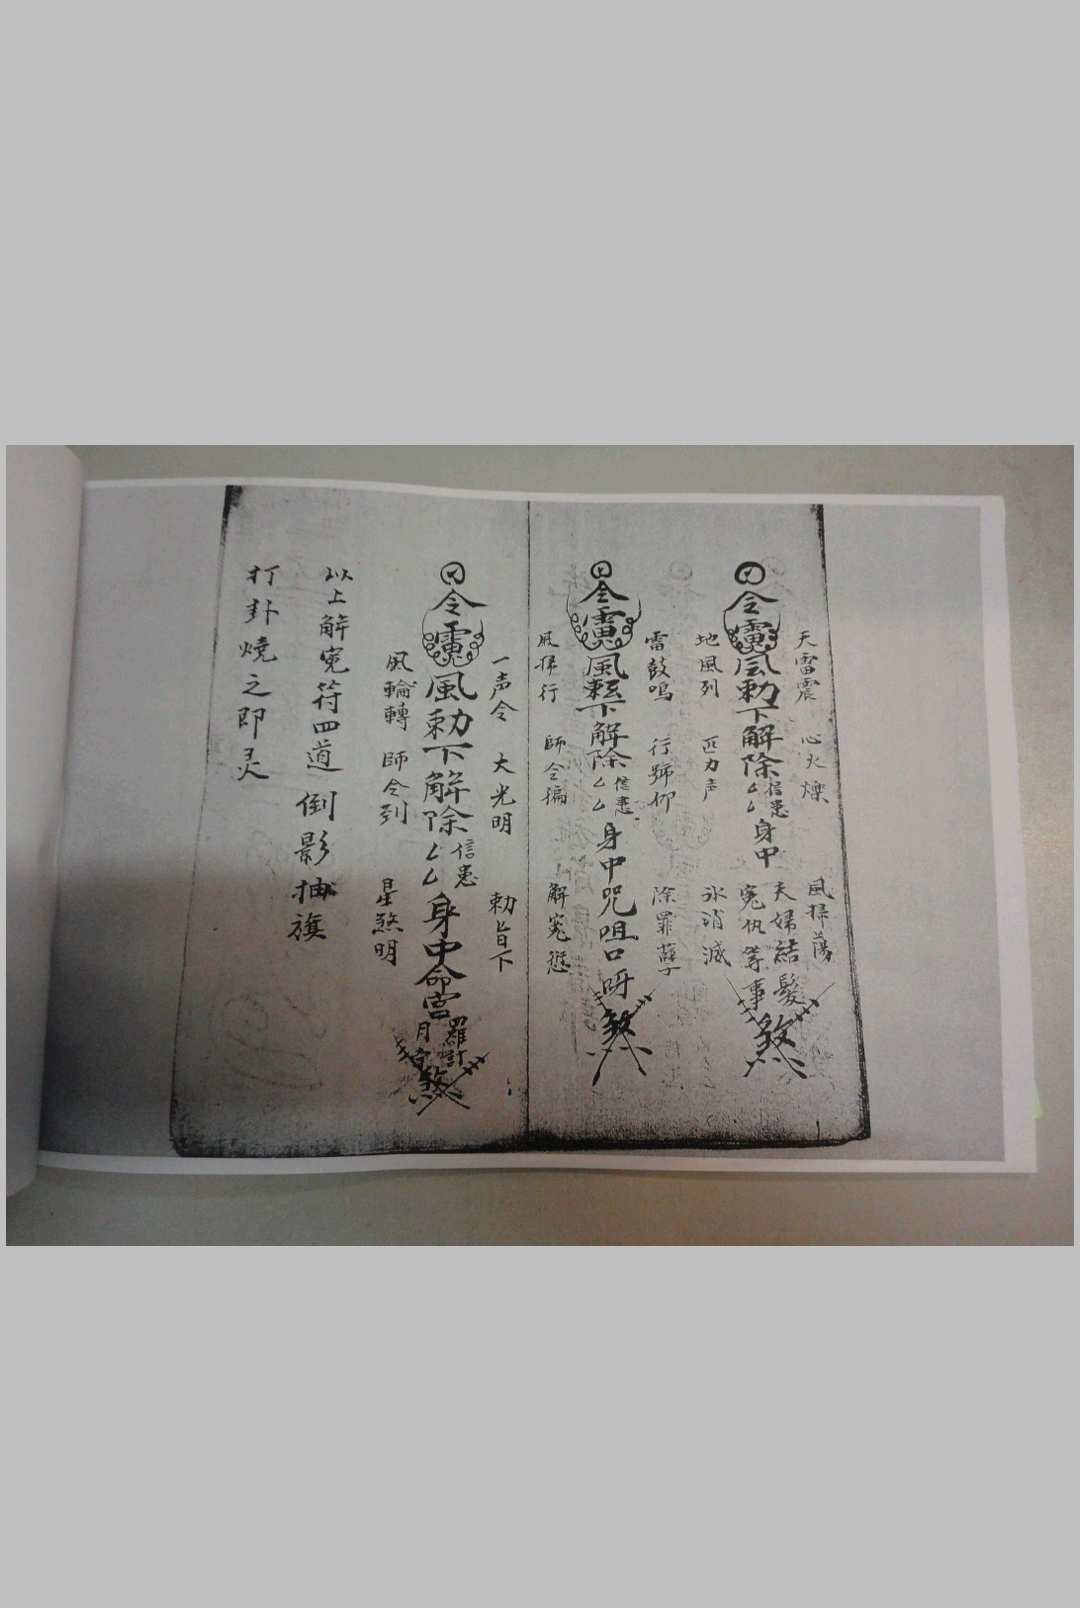 天雷震 心火爍 風掃蕩
令 風勅下解除信患ム厶身中夫婦結髮冤仇等事煞
地風列 匹力声 氷消滅
雷鼓鳴 行號仰 除罪孽
令 風 下解除信患ム厶身中咒咀口呀煞
風掃行 師令徧 解冤愆
一声令 大光明 勅旨下
令 風勅下解除信患ム厶身中命宮羅計月 煞
風輪轉 師令列 星煞明
以上解冤符四道 倒影抽旗
打卦燒之即灵